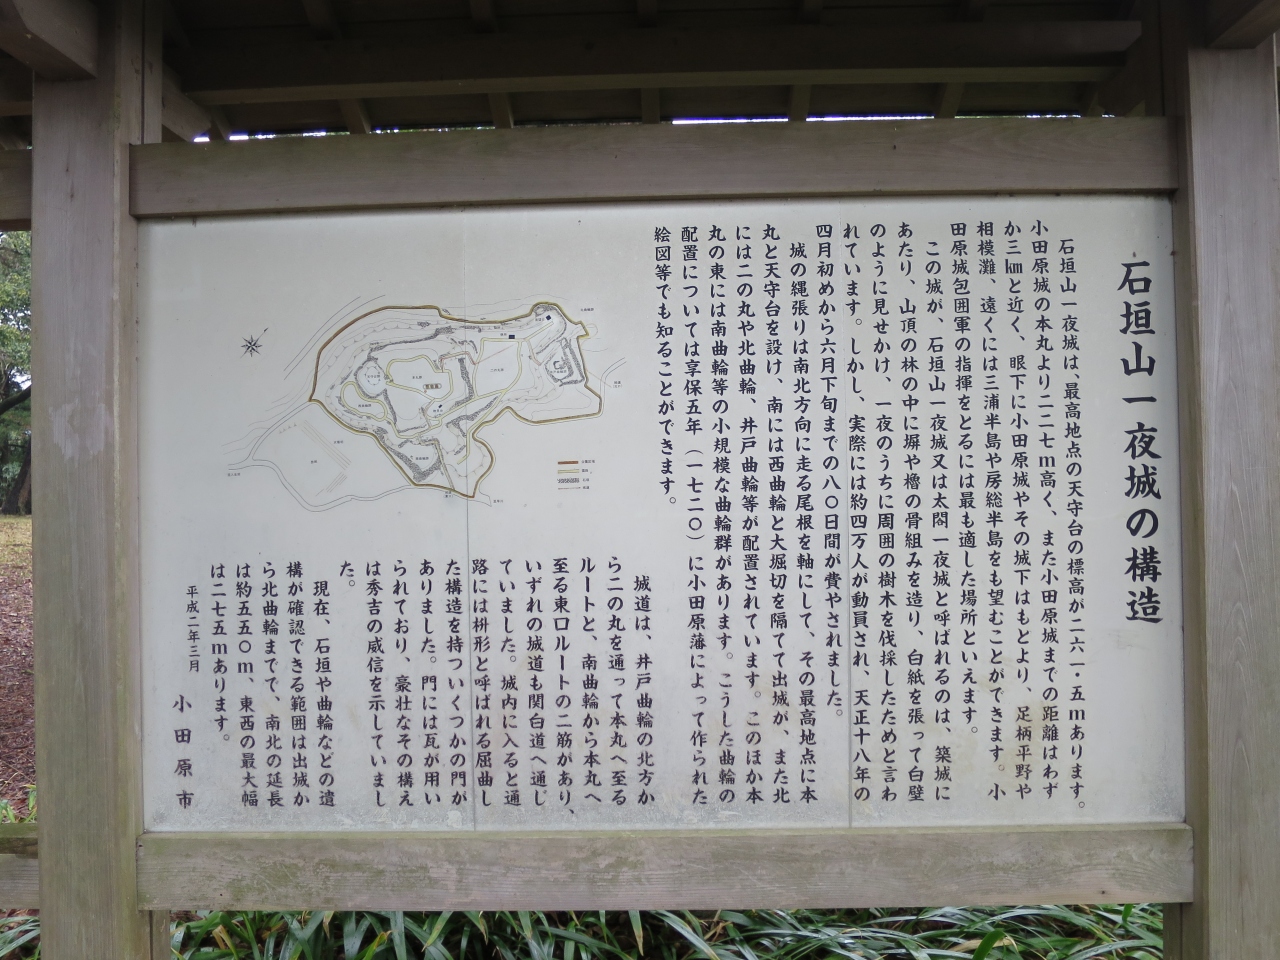 石垣山一夜城の構造
石垣山一夜城は、最高地点の天守台の標高が二六一・五ｍあります。
小田原城の本丸より二二七ｍ高く、また小田原城までの距離はわず
か三㎞と近く、眼下に小田原城やその城下はもとより、足柄平野や
相模灘、遠くには三浦半島や房総半島をも望むことができます。小
田原城包囲軍の指揮をとるには最も適した場所といえます。
この城が、石垣山一夜城又は太閤一夜城と呼ばれるのは、築城に
あたり、山頂の林の中に塀や櫓の骨組みを造り、白紙を張って白壁
のように見せかけ、一夜のうちに周囲の樹木を伐採したためと言わ
れています。しかし、実際には約四万人が動員され、天正十八年の
四月初めから六月下旬までの八〇日間が費やされました。
城の縄張りは南北方向に走る尾根を軸にして、その最高地点に本
丸と天守台を設け、南には西曲輪と大堀切を隔てて出城が、また北
には二の丸や北曲輪、井戸曲輪等が配置されています。このほか本
丸の東には南曲輪等の小規模な曲輪群があります。こうした曲輪の
配置については享保五年（一七二〇）に小田原藩によって作られた
絵図等でも知ることができます。
城道は、井戸曲輪の北方か
ら二の丸を通って本丸へ至る
ルートと、南曲輪から本丸へ
至る東口ルートの二筋があり、
いずれの城道も関白道へ通じ
ていました。城内に入ると通
路には枡形と呼ばれる屈曲し
た構造を持ついくつかの門が
ありました。門には瓦が用い
られており、豪壮なその構え
は秀吉の威信を示していまし
た。
現在、石垣や曲輪などの遺
構が確認できる範囲は出城か
ら北曲輪までで、南北の延長
は約五五〇ｍ、東西の最大幅
は二七五ｍあります。
平成二年三月
小田原市